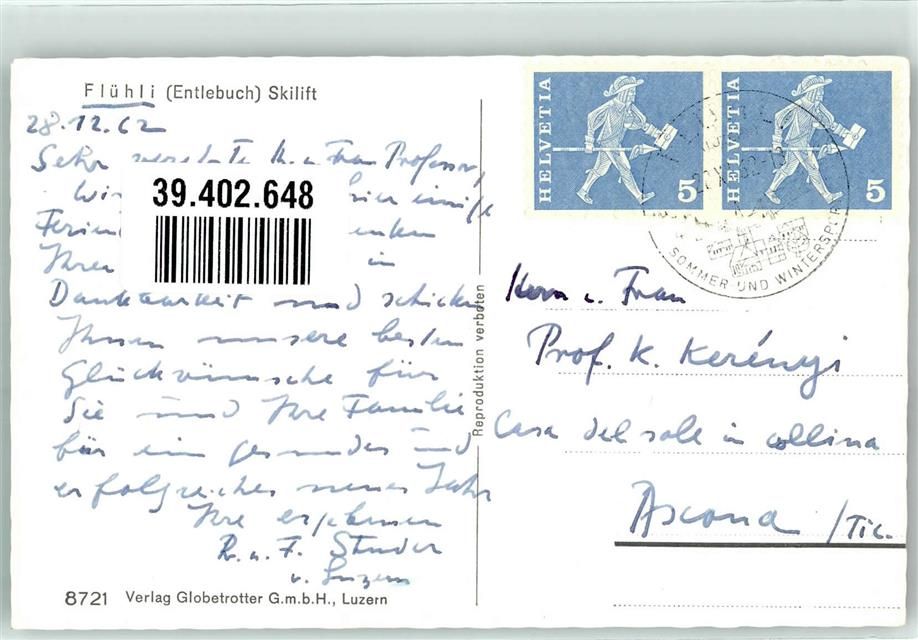 Flühli (Entlebuch) Skilift
28.12.62
Sehr verehrte H. u. Frau Professor,
Wir hier einige
Ferien
Ihrer in
Dankbarkeit und schicken
Ihnen unsere besten
Glückwünsche für
Sie und Ihre Familie
für ein gesundes und
erfolgreiches neues Jahr
Ihre ergebenen
R. u. F. Studer
v. Luzern
8721 Verlag Globetrotter G.m.b.H., Luzern
39.402.648
Reproduktion verboten
HELVETIA 5
HELVETIA 5
SOMMER UND WINTERSPOR
Herrn u. Frau
Prof. K. Kerényi
Casa del sole in collina
Ascona /Tic.